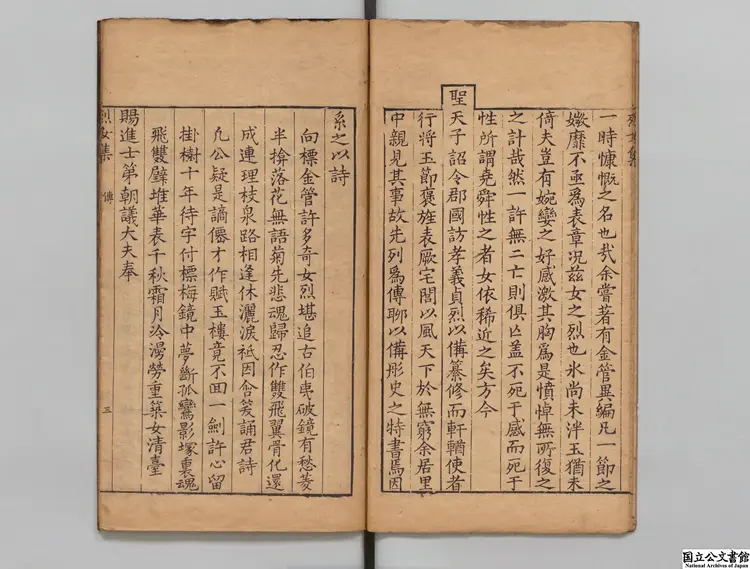 一時慷慨之名也哉余嘗著有金管異編凡一節之
媺靡不亟爲表章况茲女之烈也氷尚未泮玉猶未
倚夫豈有婉孌之好感激其胸焉是憤悼無所復之
之計哉然一許無二亡則俱亡盖不死于感而死于
性所謂堯舜性之者女依稀近之矣方今
聖天子詔令郡國訪孝義貞烈以備纂修而軒輶使者
行將玉節褒旌表厥宅閭以風天下於無窮余居里
中親見其事故先列爲傳聊以備彤史之特書焉因
系之以詩
向標金管許多奇女烈堪追古伯夷破鏡有愁菱
半揜落花無語菊先悲魂歸忍作雙飛翼骨化還
成連理枝泉路相逢休灑淚祗因含笑誦君詩
凢公疑是謫僊才作賦玉樓竟不回一劍許心留
掛樹十年待字付標梅鏡中夢斷孤鸞影塚裏魂
飛雙璧堆華表千秋霜月冷謾勞重築女清臺
賜進士第朝議大夫奉
烈女集
傳
三
国立公文書館
National Archives of Japan